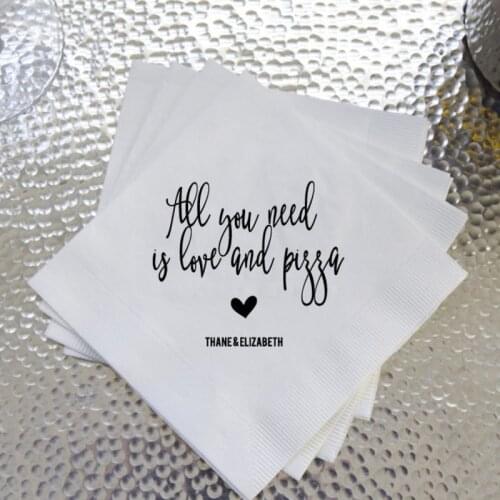 All you need
is love and pizza
THANE & ELIZABETH